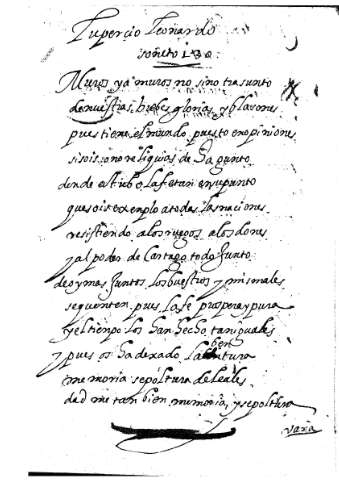 Lupercio Leonardo
soneto 130
Muros ya muros no sino trasunto
de nuestras brebes glorias y blasones
pues tiene el mundo puesto en opiniones
si sois o no reliquias de Sagunto
donde estubo la fe tan en su punto
que sois exenplo a todas las naciones
resistiendo a los ruegos a los dones
y al poder de Cartago todo junto
de oy mas juntos los buestros y mis males
se quenten pues la fe prospera y pura
y el tienpo los han hecho tan iguales
y pues os ha dexado la bentura
memoria sepoltura de leales
dad me tan bien memoria, y sepoltura
vana